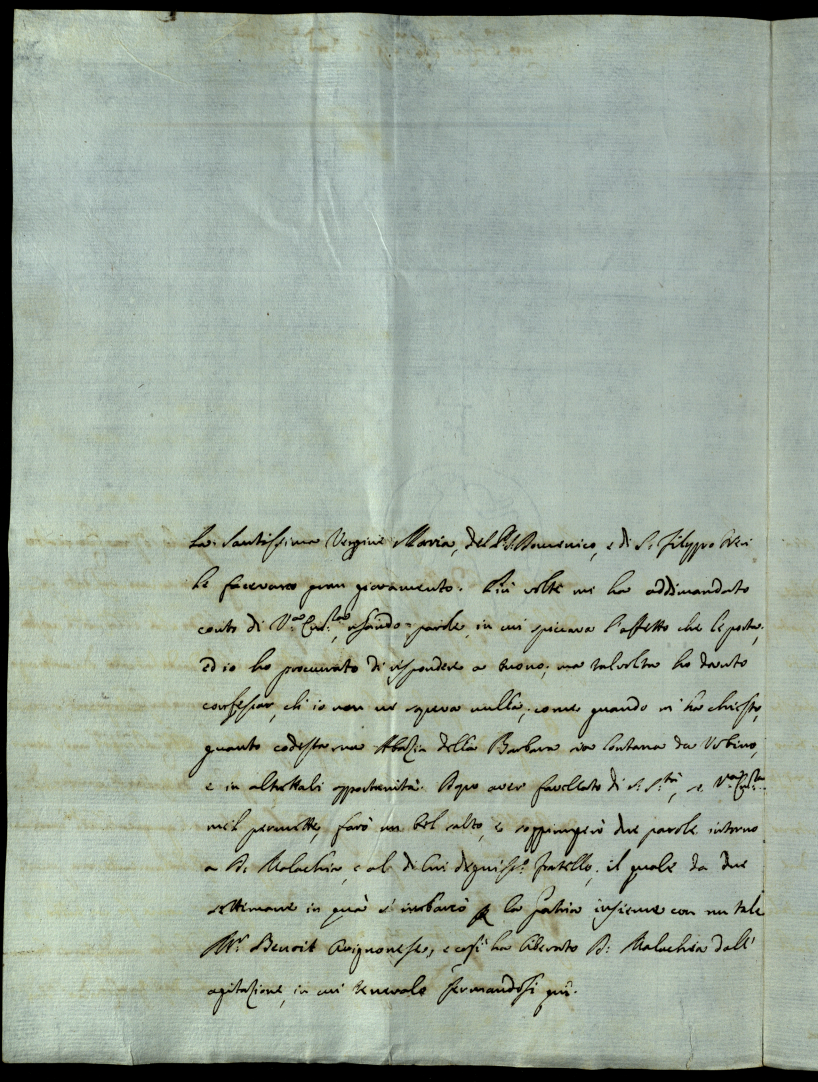 La Santissima Vergine Maria, del P. S. Domenico, e di S. Filippo Neri
le facevano gran giovamento. Più volte mi ha addimandato
conto di V.ra Em.za, usando parole, in cui spiccava l'affetto che le porta,
ed io ho procurato di rispondere a tuono; ma talvolta ho devuto
confessar, ch'io non ne sapeva nulla; come quando mi ha chiesto,
quanto codesta sua Abazia della Barbara sia lontana da Urbino,
e in altrettali opportunità. Dopo aver favellato di S. S.tà, se V.ra Em.za
mel permette, farò un bel salto, e soggiungerò due parole intorno
a D. Malachia, e al di lui degniss.o fratello, il quale da due
settimane in quà s'imbarcò per la Patria insieme con un tale
Mr. Benoit Avignonese, e così ha liberato D. Malachia dall'
agitazione, in cui tenevalo fermandosi quì.